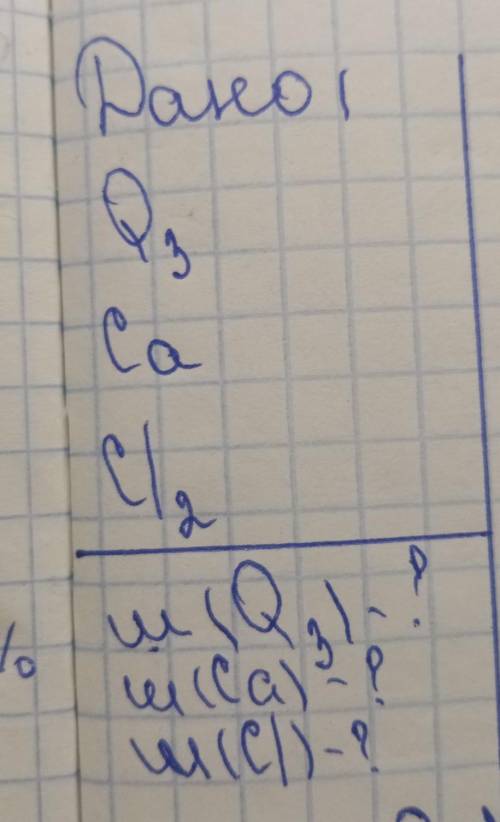 Дано:
O₃
Ca
Cl₂
%
m(O₃)-?
m(Ca)-?
m(Cl)-?